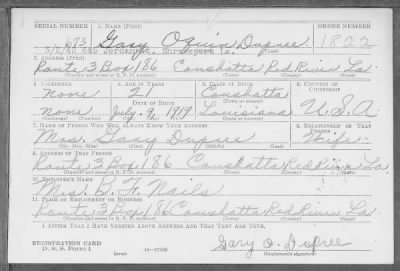 SERIAL NUMBER 1. NAME (Print) ORDER NUMBER
673 Gary Oquin Dupree 1822
Jordan St. Shreveport La.
2. ADDRESS (Print)
Route 3 Box 186 Coushatta Red River La
(Number and street or R. F. D. number) (Town) (County) (State)
3. TELEPHONE 4. AGE IN YEARS 5. PLACE OF BIRTH 6. COUNTRY OF CITIZENSHIP
None 21 Coushatta
DATE OF BIRTH (Town or county)
None July 9, 1919 Louisiana U. S. A
7. NAME OF PERSON WHO WILL ALWAYS KNOW YOUR ADDRESS 8. RELATIONSHIP OF THAT PERSON
Mrs. Gary Dupree Wife
(Mr., Mrs., Miss) (First) (Middle) (Last)
9. ADDRESS OF THAT PERSON
Route 3 Box 186 Coushatta Red River La
(Number and street or R. F. D. number) (Town) (County) (State)
10. EMPLOYER'S NAME
Mrs. B. F. Nails
11. PLACE OF EMPLOYMENT OR BUSINESS
Route 3 Box 186 Coushatta Red River La
(Number and street or R. F. D. number) (Town) (County) (State)
I AFFIRM THAT I HAVE VERIFIED ABOVE ANSWERS AND THAT THEY ARE TRUE.
REGISTRATION CARD
D. S. S. FORM 1 (over) Gary O. Dupree
(Registrant's signature)